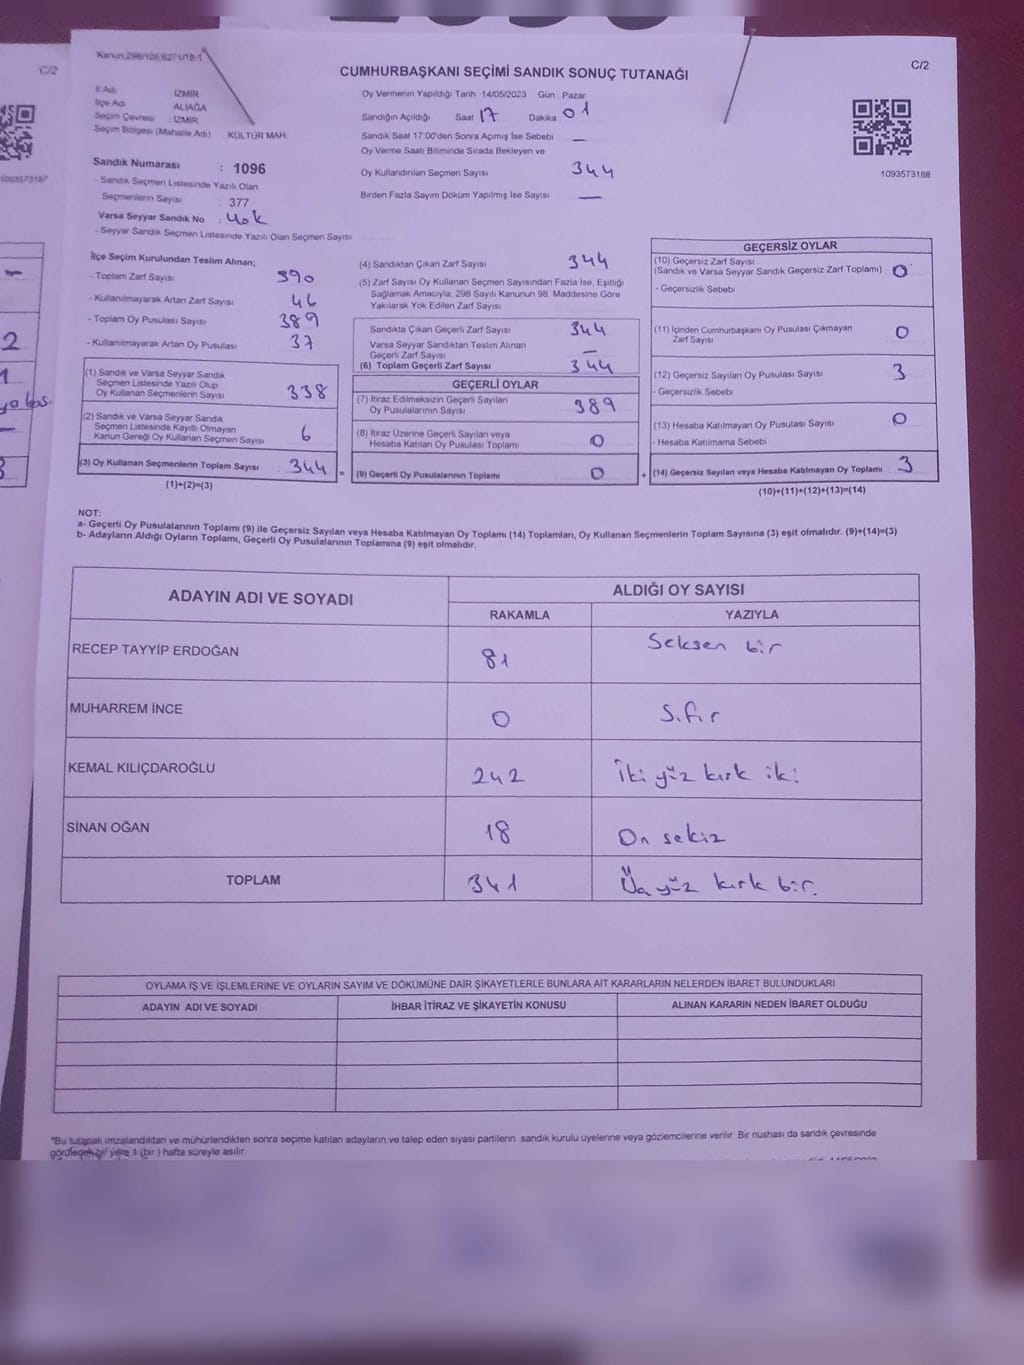 Kanun:298/105,6271/18-1
C/2
C/2
CUMHURBAŞKANI SEÇİMİ SANDIK SONUÇ TUTANAĞI
İl Adı İZMİR
İlçe Adı ALİAĞA
Seçim Çevresi : İZMİR
Seçim Bölgesi (Mahalle Adı) KÜLTÜR MAH.
Sandık Numarası : 1096
- Sandık Seçmen Listesinde Yazılı Olan
Seçmenlerin Sayısı : 377
Varsa Seyyar Sandık No : Yok
- Seyyar Sandık Seçmen Listesinde Yazılı Olan Seçmen Sayısı
Oy Vermenin Yapıldığı Tarih 14/05/2023 Gün Pazar
Sandığın Açıldığı Saat 17 Dakika 01
Sandık Saat 17:00'den Sonra Açımış İse Sebebi —
Oy Verme Saati Bitiminde Sırada Bekleyen ve
Oy Kullandırılan Seçmen Sayısı 344
Birden Fazla Sayım Döküm Yapılmış İse Sayısı —
1093573188
1093573187
İlçe Seçim Kurulundan Teslim Alınan;
- Toplam Zarf Sayısı 390
- Kullanılmayarak Artan Zarf Sayısı 46
- Toplam Oy Pusulası Sayısı 389
- Kullanılmayarak Artan Oy Pusulası 37
(1) Sandık ve Varsa Seyyar Sandık
Seçmen Listesinde Yazılı Olup
Oy Kullanan Seçmenlerin Sayısı 338
(2) Sandık ve Varsa Seyyar Sandık
Seçmen Listesinde Kayıtlı Olmayan
Kanun Gereği Oy Kullanan Seçmen Sayısı 6
(3) Oy Kullanan Seçmenlerin Toplam Sayısı 344 =
(1)+(2)=(3)
(4) Sandıktan Çıkan Zarf Sayısı 344
(5) Zarf Sayısı Oy Kullanan Seçmen Sayısından Fazla İse, Eşitliği
Sağlamak Amacıyla, 298 Sayılı Kanunun 98. Maddesine Göre
Yakılarak Yok Edilen Zarf Sayısı
Sandıkta Çıkan Geçerli Zarf Sayısı 344
Varsa Seyyar Sandıktan Teslim Alınan
Geçerli Zarf Sayısı —
(6) Toplam Geçerli Zarf Sayısı 344
GEÇERLİ OYLAR
(7) İtiraz Edilmeksizin Geçerli Sayılan
Oy Pusulalarının Sayısı 389
(8) İtiraz Üzerine Geçerli Sayılan veya
Hesaba Katılan Oy Pusulası Toplamı 0
(9) Geçerli Oy Pusulalarının Toplamı 0 +
GEÇERSİZ OYLAR
(10) Geçersiz Zarf Sayısı
(Sandık ve Varsa Seyyar Sandık Geçersiz Zarf Toplamı) 0
- Geçersizlik Sebebi
(11) İçinden Cumhurbaşkanı Oy Pusulası Çıkmayan
Zarf Sayısı 0
(12) Geçersiz Sayılan Oy Pusulası Sayısı 3
- Geçersizlik Sebebi
(13) Hesaba Katılmayan Oy Pusulası Sayısı 0
- Hesaba Katılmama Sebebi
(14) Geçersiz Sayılan veya Hesaba Katılmayan Oy Toplamı 3
(10)+(11)+(12)+(13)=(14)
NOT:
a- Geçerli Oy Pusulalarının Toplamı (9) ile Geçersiz Sayılan veya Hesaba Katılmayan Oy Toplamı (14) Toplamları, Oy Kullanan Seçmenlerin Toplam Sayısına (3) eşit olmalıdır. (9)+(14)=(3)
b- Adayların Aldığı Oyların Toplamı, Geçerli Oy Pusulalarının Toplamına (9) eşit olmalıdır.
ADAYIN ADI VE SOYADI ALDIĞI OY SAYISI
RAKAMLA YAZIYLA
RECEP TAYYİP ERDOĞAN 81 Seksen bir
MUHARREM İNCE 0 Sıfır
KEMAL KILIÇDAROĞLU 242 İki yüz kırk iki
SİNAN OĞAN 18 On sekiz
TOPLAM 341 Üç yüz kırk bir.
OYLAMA İŞ VE İŞLEMLERİNE VE OYLARIN SAYIM VE DÖKÜMÜNE DAİR ŞİKAYETLERLE BUNLARA AİT KARARLARIN NELERDEN İBARET BULUNDUKLARI
ADAYIN ADI VE SOYADI İHBAR İTİRAZ VE ŞİKAYETİN KONUSU ALINAN KARARIN NEDEN İBARET OLDUĞU
*Bu tutanak imzalandıktan ve mühürlendikten sonra seçime katılan adayların ve talep eden siyasi partilerin sandık kurulu üyelerine veya gözlemcilerine verilir. Bir nüshası da sandık çevresinde
görülecek bir yere 1 (bir) hafta süreyle asılır.